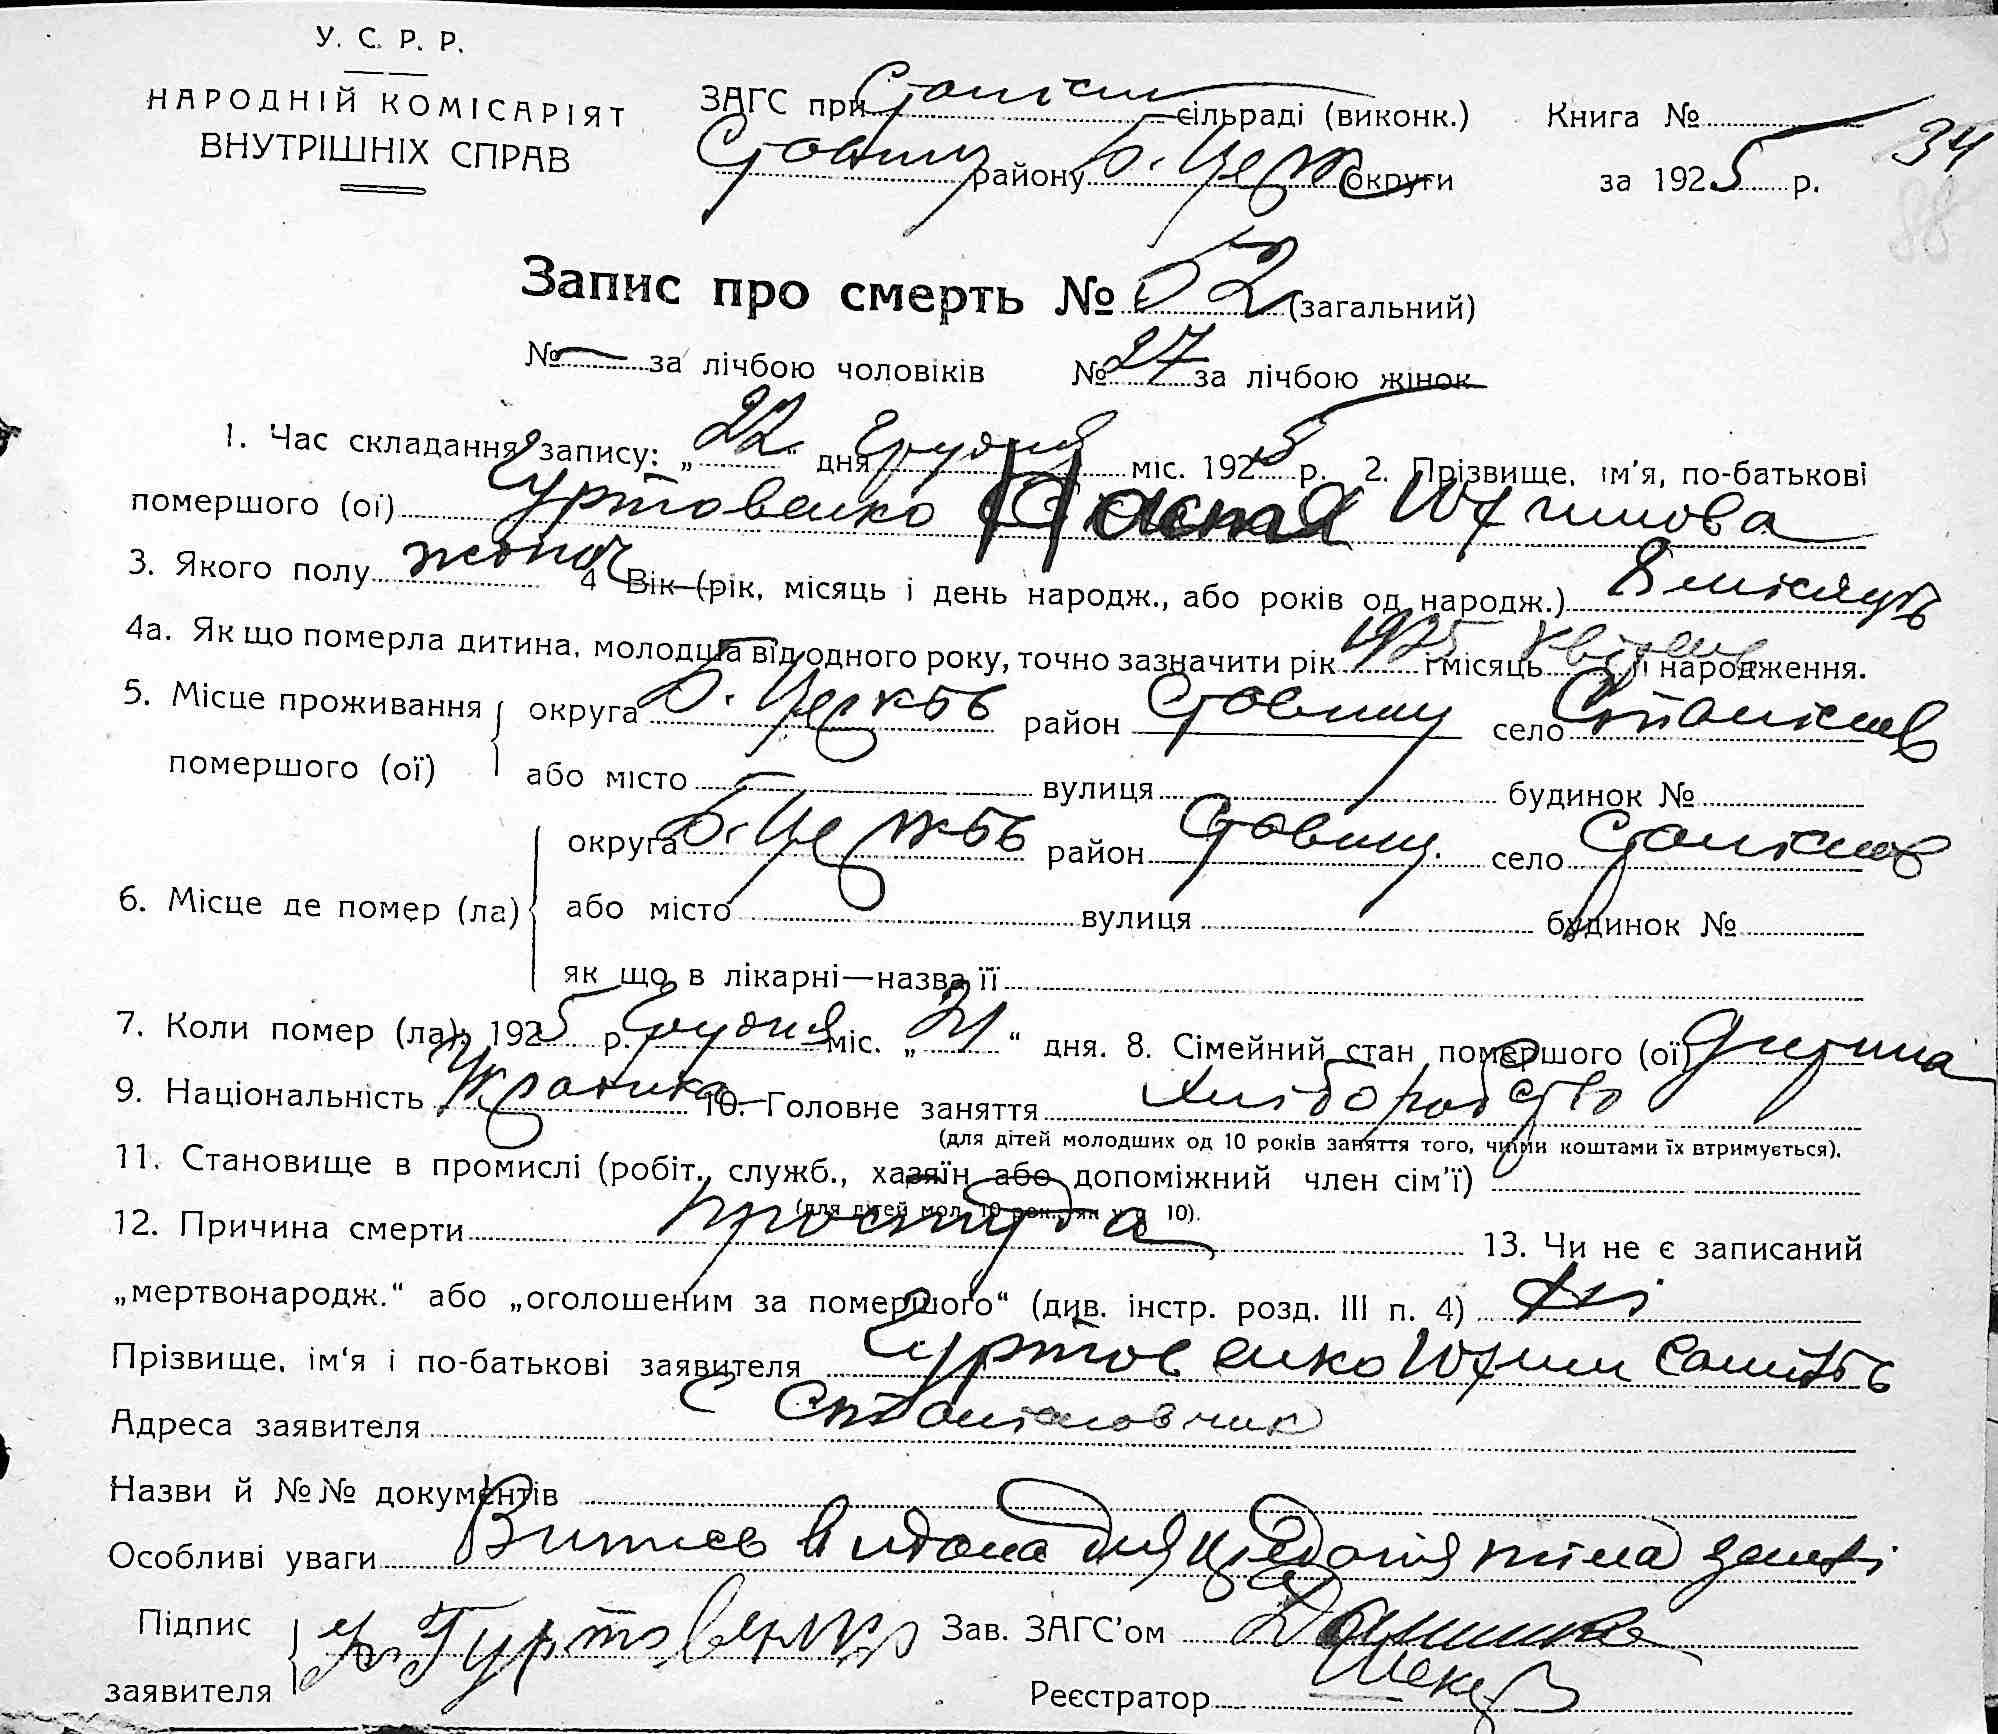 У. С. Р. Р.
НАРОДНІЙ КОМІСАРІЯТ
ВНУТРІШНІХ СПРАВ
ЗАГС при сільраді (виконк.)
Книга №
34
району Б. Церк округи
за 1925 р.
88
Запис про смерть № 52 (загальний)
№ — за лічбою чоловіків № 27 за лічбою жінок
1. Час складання запису: „22“ дня Грудня міс. 1925 р. 2. Прізвище, ім'я, по-батькові
помершого (ої) Гуртовенко Настя Юхимова
3. Якого полу жіноч 4 Вік (рік, місяць і день народж., або років од народж.) 8 місяцъ
4а. Як що померла дитина, молодша від одного року, точно зазначити рік 1925 і місяць квітень народження.
5. Місце проживання помершого (ої) округа Б. Церкъв район Ставищ село
або місто вулиця будинок №
6. Місце де помер (ла) округа Б. Церкъв район Ставищ. село
або місто вулиця будинок №
як що в лікарні—назва її
7. Коли помер (ла): 1925 р. Грудня міс. „21“ дня. 8. Сімейний стан помершого (ої) Дитина
9. Національність Украінка 10. Головне заняття хліборобство
(для дітей молодших од 10 років заняття того, чиїми коштами їх втримується).
11. Становище в промислі (робіт., служб., хазяїн або допоміжний член сім'ї)
(для дітей мол. 10 рок., як у п 10).
12. Причина смерти простуда 13. Чи не є записаний
„мертвонародж.“ або „оголошеним за помершого“ (див. інстр. розд. III п. 4) Ні
Прізвище, ім'я і по-батькові заявителя Гуртовенко Юхим
Адреса заявителя С
Назви й №№ документів
Особливі уваги видана для тіла землі
Підпис заявителя Гуртовенко
Зав. ЗАГС'ом
Реєстратор